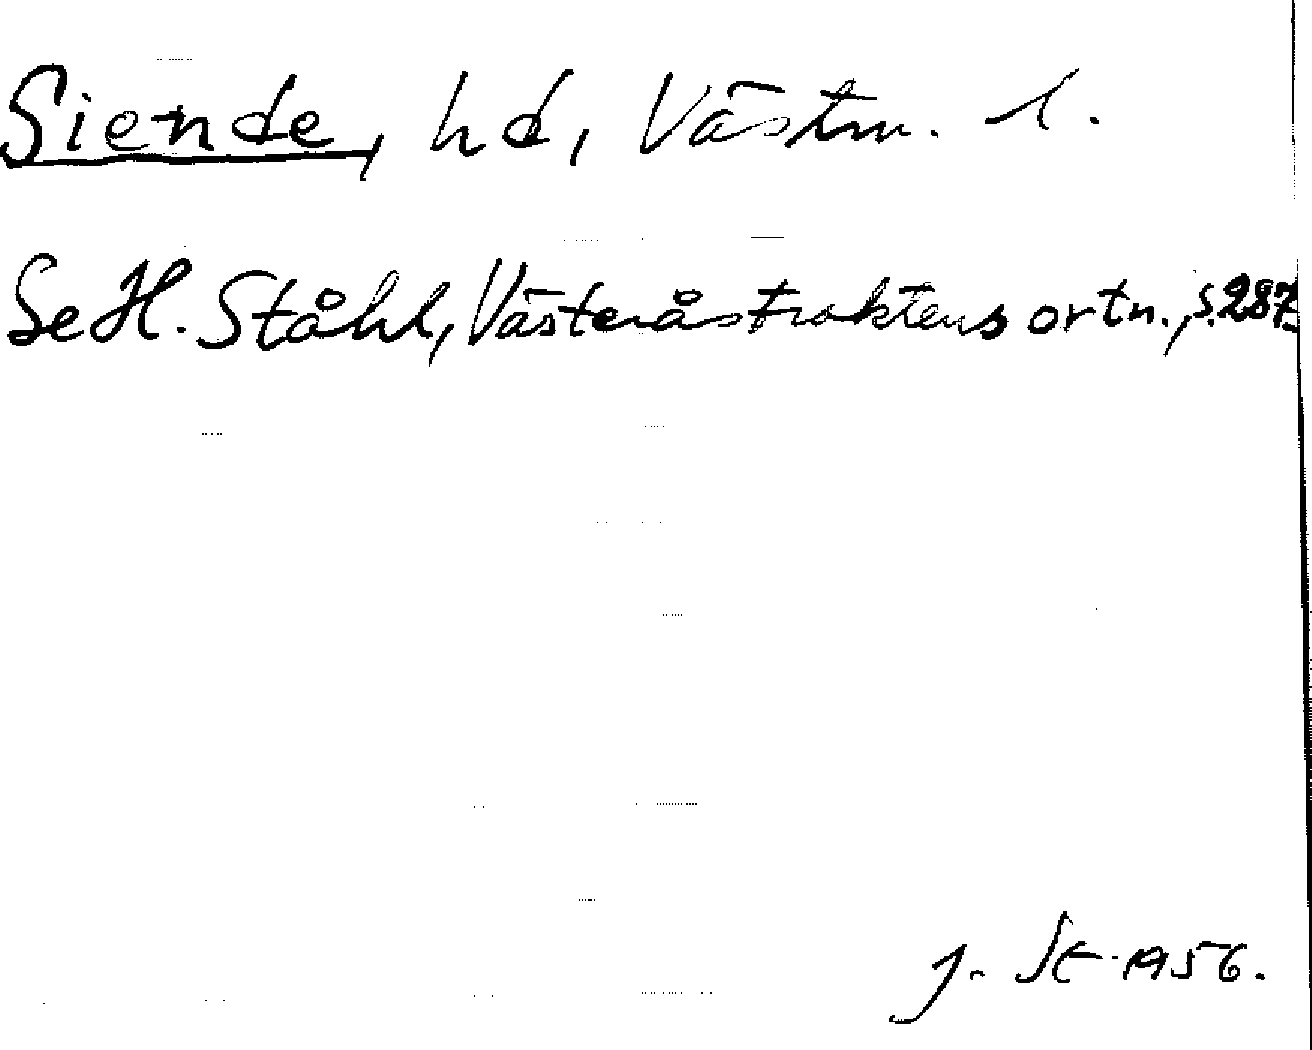 Siende, hd, Västm. l.
Se H. Ståhl, Västeråstraktens ortn., s. 287.
J. St. 1956.